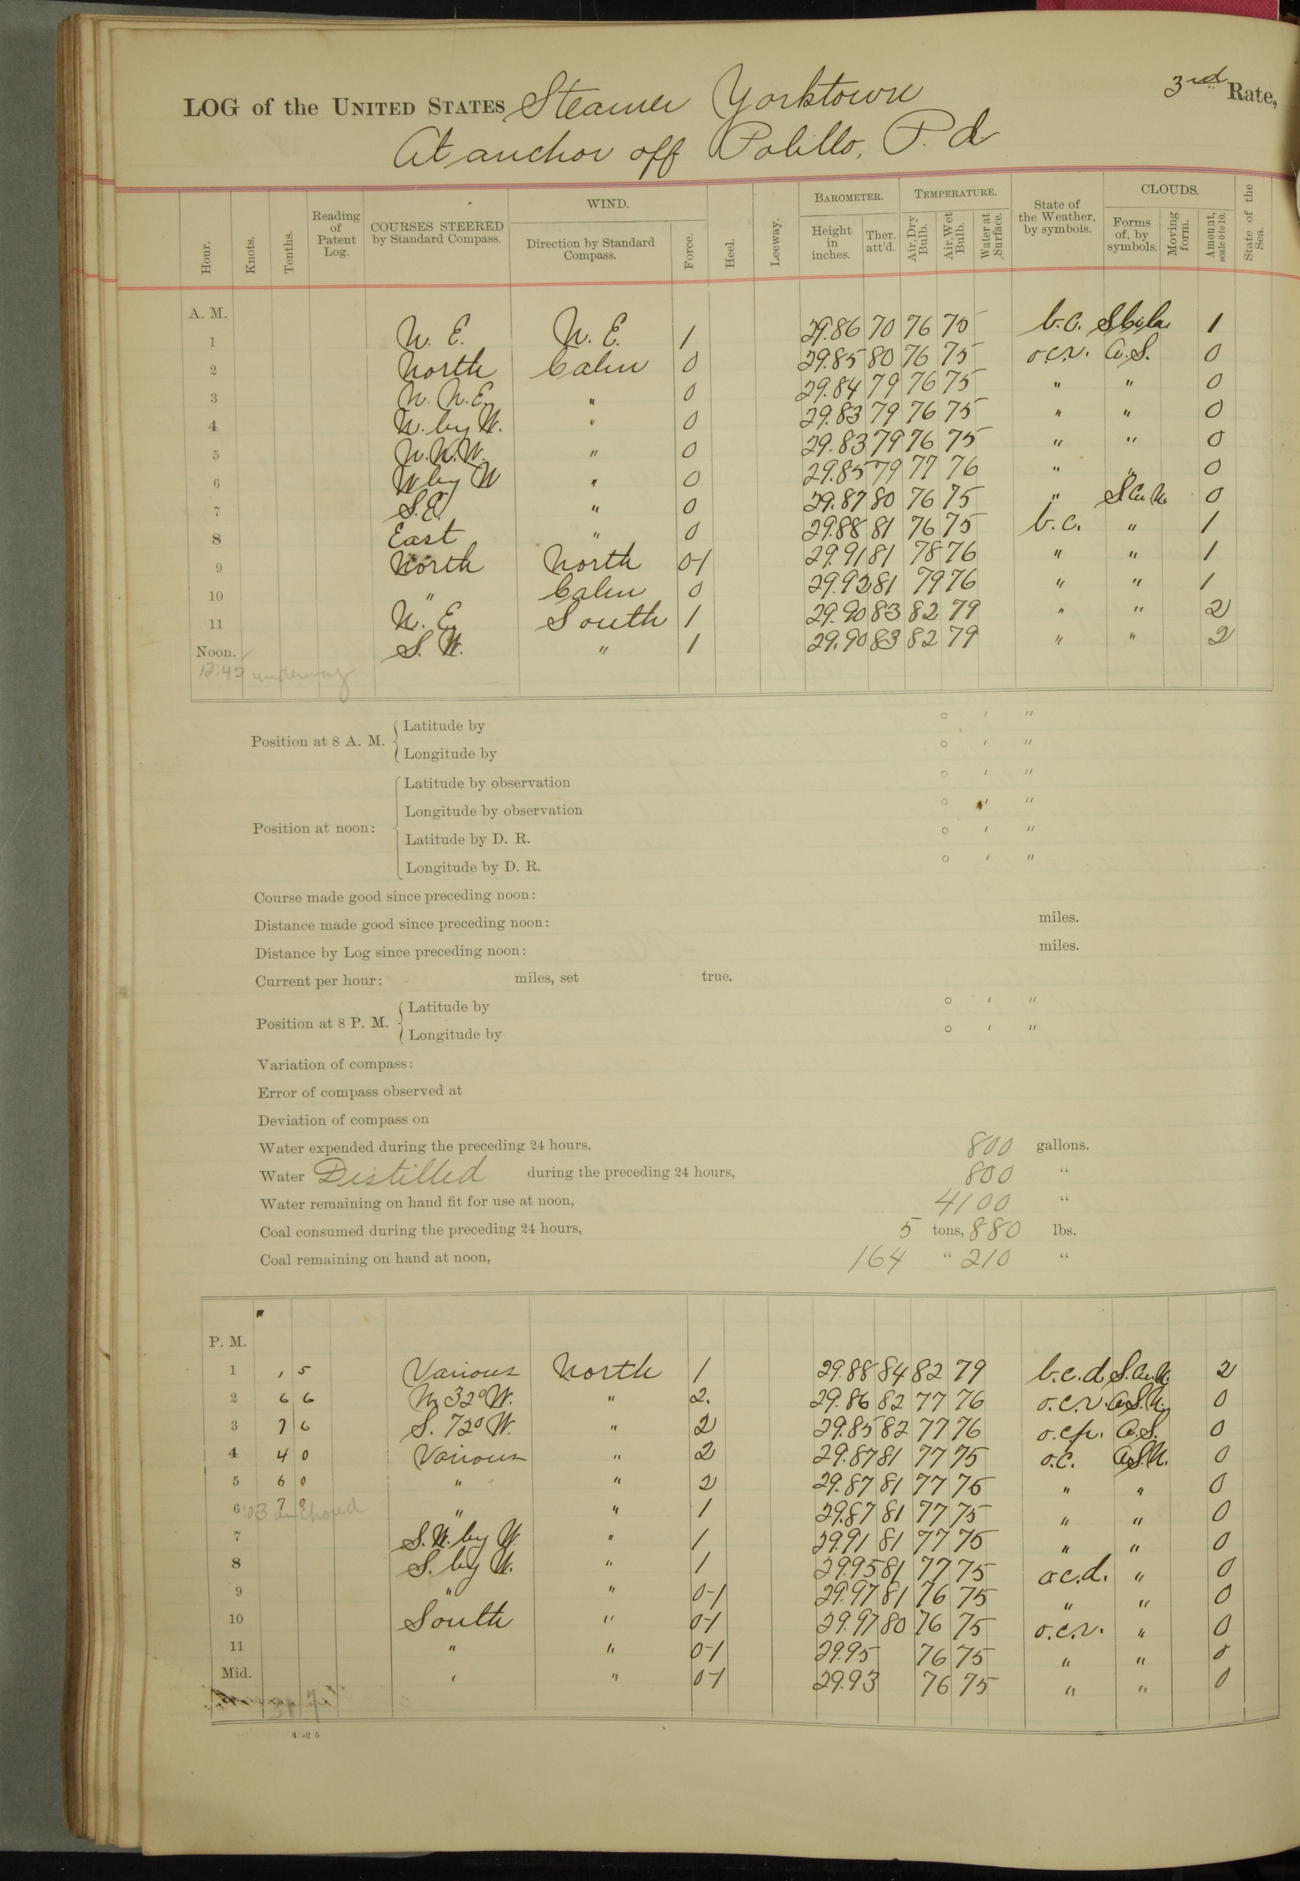 LOG of the UNITED STATES Steamer Yorktown 3rd Rate,
At anchor off Polillo, P.d
Hour. Knots. Tenths. Reading of Patent Log. COURSES STEERED by Standard Compass. WIND. Direction by Standard Compass. Force. Heel. Leeway. BAROMETER. Height in inches. Ther. att'd. TEMPERATURE. Air, Dry Bulb. Air, Wet Bulb. Water at Surface. State of the Weather, by symbols. CLOUDS. Forms of, by symbols. Moving form. Amount, scale 0 to 10. State of the Sea.
A. M.
1 N. E. N. E. 1 29.86 70 76 75 b.c. 1
2 North Calm 0 29.85 80 76 75 o.c.r. 0
3 N. N. E. " 0 29.84 79 76 75 " " 0
4 N. by W. " 0 29.83 79 76 75 " " 0
5 N.N.W. " 0 29.83 79 76 75 " " 0
6 N by W " 0 29.85 79 77 76 " " 0
7 S.E. " 0 29.87 80 76 75 " 0
8 East " 0 29.88 81 76 75 b.c. " 1
9 North North 0-1 29.91 81 78 76 " " 1
10 " Calm 0 29.92 81 79 76 " " 1
11 N. E. South 1 29.90 83 82 79 " " 2
Noon. S. W. " 1 29.90 83 82 79 " " 2
12:45 underway
Position at 8 A. M. Latitude by ° ' "
Longitude by ° ' "
Position at noon: Latitude by observation ° ' "
Longitude by observation ° ' "
Latitude by D. R. ° ' "
Longitude by D. R. ° ' "
Course made good since preceding noon:
Distance made good since preceding noon: miles.
Distance by Log since preceding noon: miles.
Current per hour: miles, set true.
Position at 8 P. M. Latitude by ° ' "
Longitude by ° ' "
Variation of compass:
Error of compass observed at
Deviation of compass on
Water expended during the preceding 24 hours, 800 gallons.
Water Distilled during the preceding 24 hours, 800 "
Water remaining on hand fit for use at noon, 4100 "
Coal consumed during the preceding 24 hours, 5 tons, 880 lbs.
Coal remaining on hand at noon, 164 " 210 "
P. M.
1 , 5 Various North 1 29.88 84 82 79 b.c.d. 2
2 6 6 N. 32° W. " 2. 29.86 82 77 76 o.c.r. 0
3 7 6 S. 72° W. " 2 29.85 82 77 76 o.c.p. 0
4 4 0 Various " 2 29.87 81 77 75 o.c. 0
5 6 0 " " 2 29.87 81 77 75 " " 0
6:03 anchored " " 1 29.87 81 77 75 " " 0
7 S.W. by W. " 1 29.91 81 77 75 " " 0
8 S. by W. " 1 29.95 81 77 75 o.c.d. " 0
9 " " 0-1 29.97 81 76 75 " " 0
10 South " 0-1 29.97 80 76 75 o.c.r. " 0
11 " " 0-1 29.95 76 75 " " 0
Mid. " " 0-1 29.93 76 75 " " 0